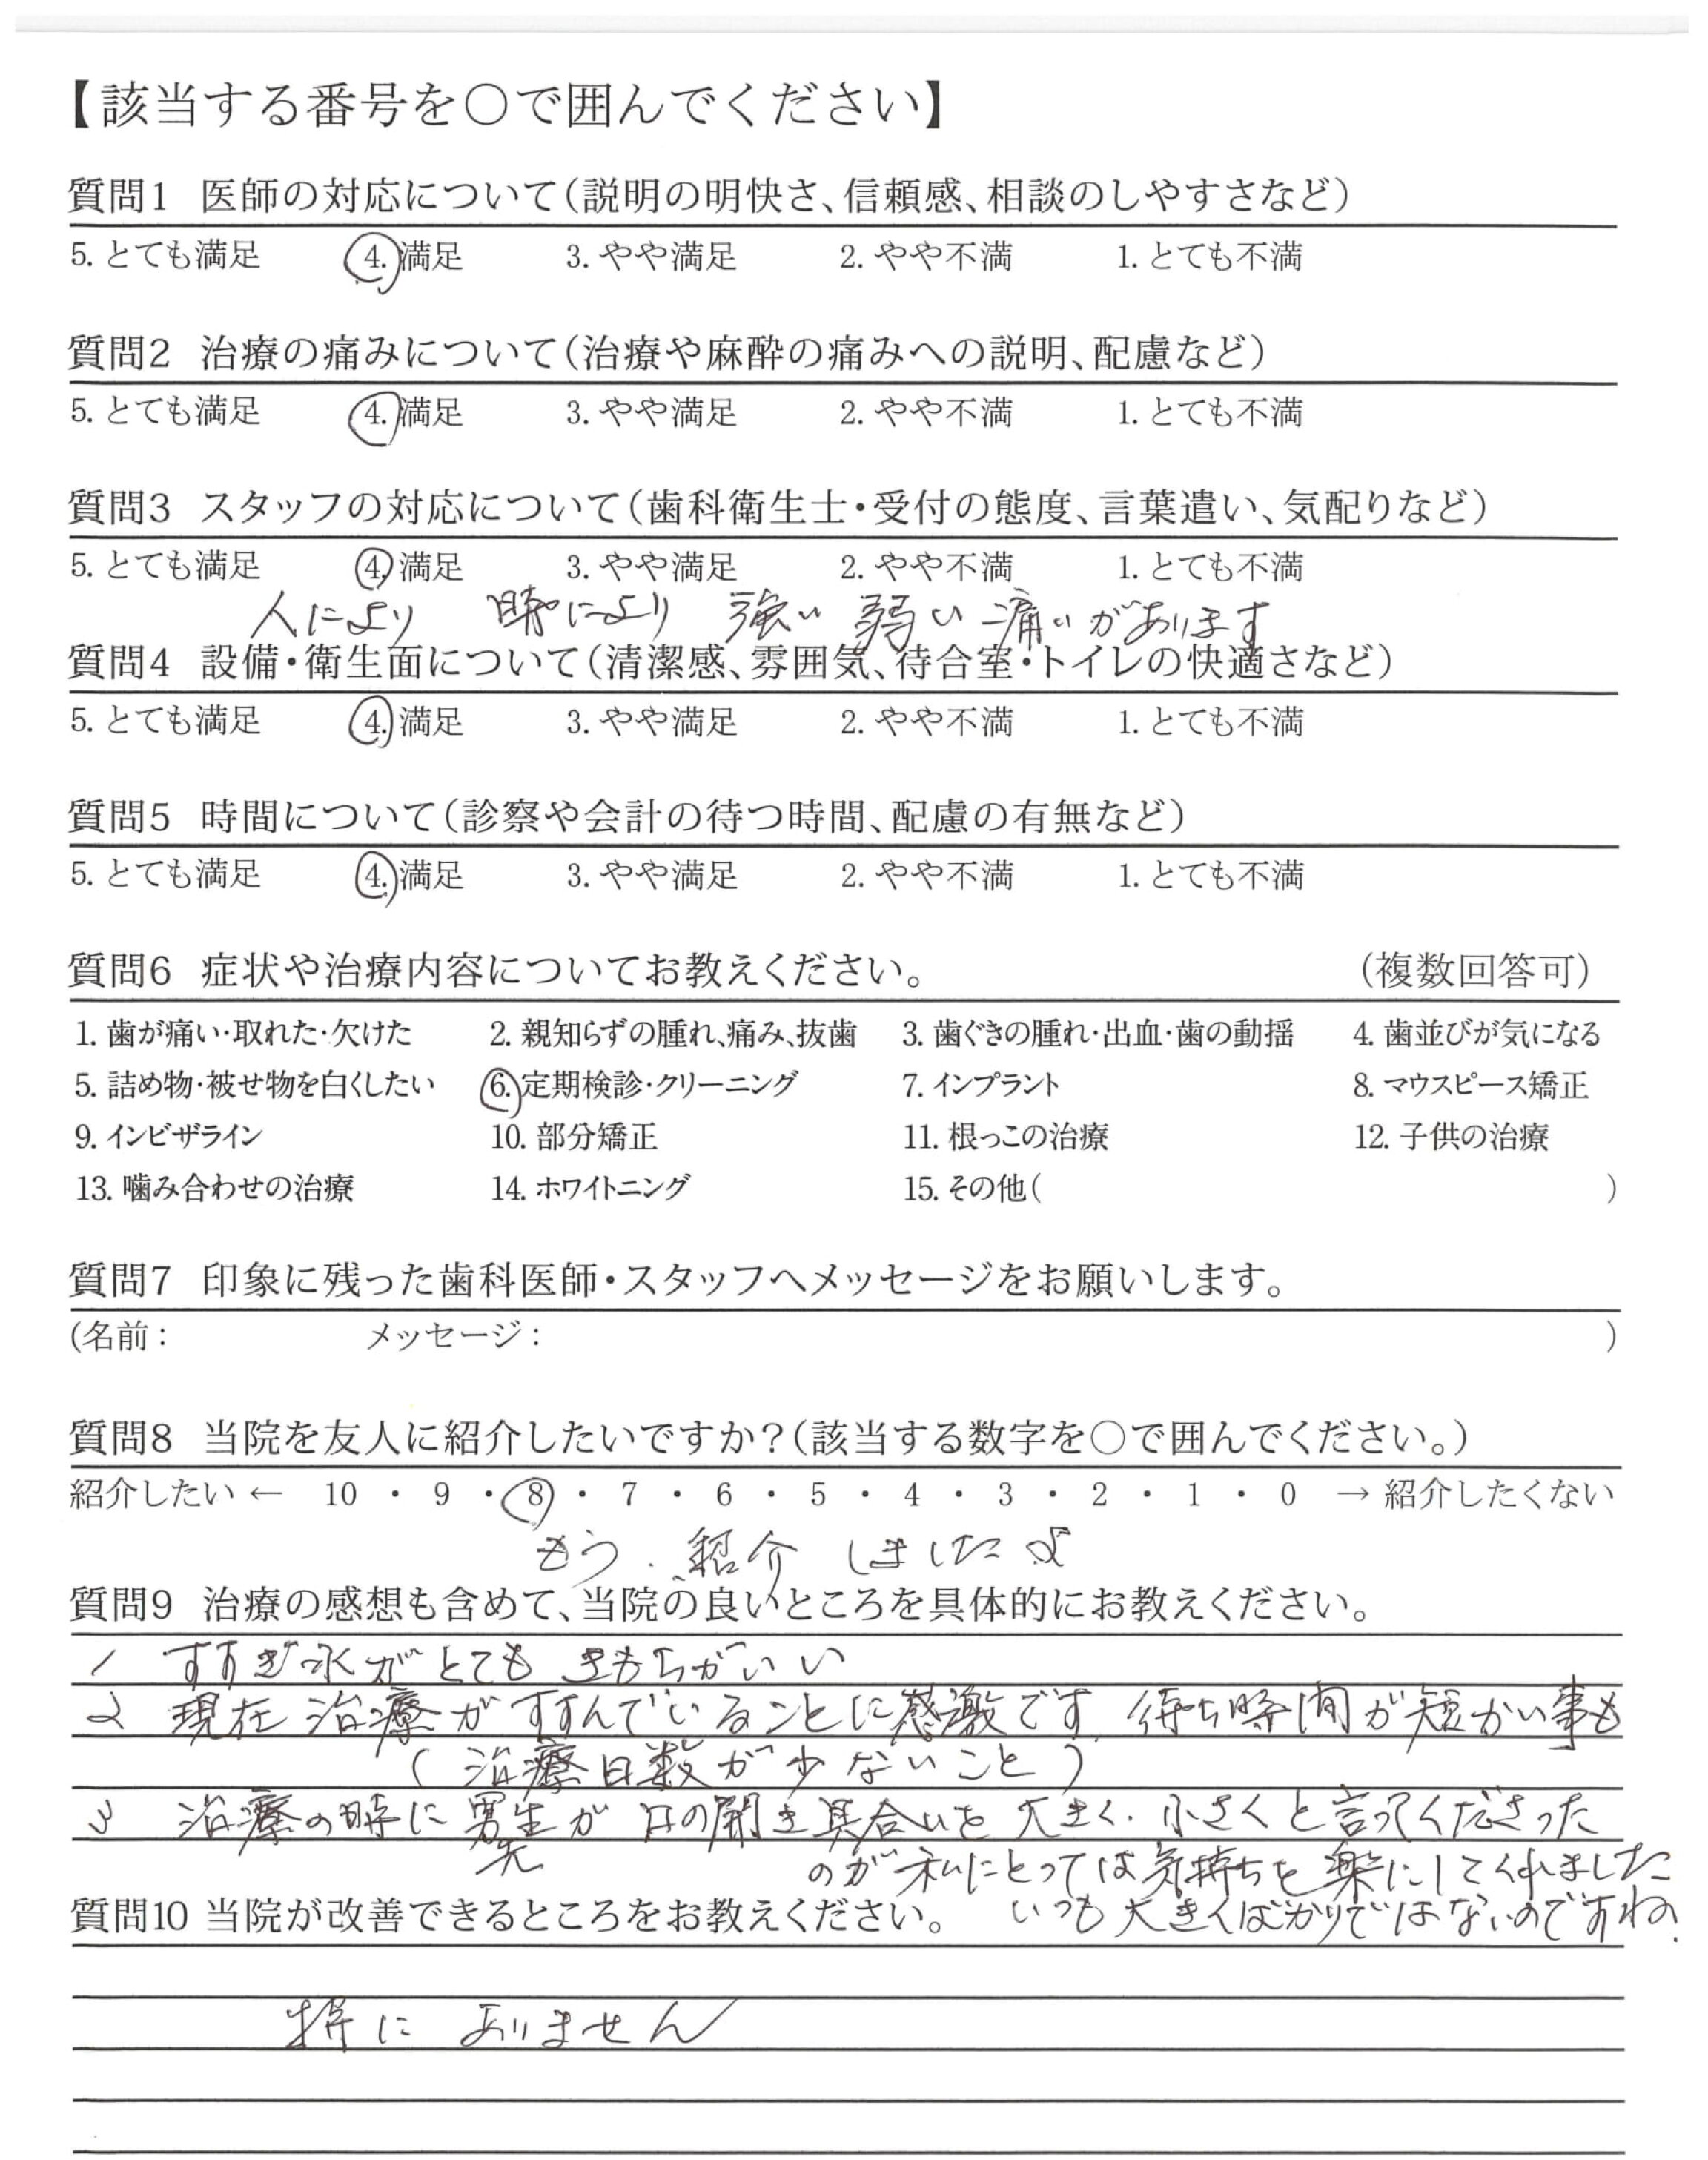 【該当する番号を○で囲んでください】
質問1 医師の対応について(説明の明快さ、信頼感、相談のしやすさなど)
5. とても満足 4. 満足 3. やや満足 2. やや不満 1. とても不満
質問2 治療の痛みについて(治療や麻酔の痛みへの説明、配慮など)
5. とても満足 4. 満足 3. やや満足 2. やや不満 1. とても不満
質問3 スタッフの対応について(歯科衛生士・受付の態度、言葉遣い、気配りなど)
5. とても満足 4. 満足 3. やや満足 2. やや不満 1. とても不満
人により 時により 強い 弱い 痛いがあります
質問4 設備・衛生面について(清潔感、雰囲気、待合室・トイレの快適さなど)
5. とても満足 4. 満足 3. やや満足 2. やや不満 1. とても不満
質問5 時間について(診察や会計の待つ時間、配慮の有無など)
5. とても満足 4. 満足 3. やや満足 2. やや不満 1. とても不満
質問6 症状や治療内容についてお教えください。 (複数回答可)
1. 歯が痛い・取れた・欠けた 2. 親知らずの腫れ、痛み、抜歯 3. 歯ぐきの腫れ・出血・歯の動揺 4. 歯並びが気になる
5. 詰め物・被せ物を白くしたい 6. 定期検診・クリーニング 7. インプラント 8. マウスピース矯正
9. インビザライン 10. 部分矯正 11. 根っこの治療 12. 子供の治療
13. 噛み合わせの治療 14. ホワイトニング 15. その他( )
質問7 印象に残った歯科医師・スタッフへメッセージをお願いします。
(名前: メッセージ: )
質問8 当院を友人に紹介したいですか?(該当する数字を○で囲んでください。)
紹介したい ← 10 ・ 9 ・ 8 ・ 7 ・ 6 ・ 5 ・ 4 ・ 3 ・ 2 ・ 1 ・ 0 → 紹介したくない
もう、紹介しましたよ
質問9 治療の感想も含めて、当院の良いところを具体的にお教えください。
1 すすぎ水がとてもきもちがいい
2 現在治療がすすんでいることに感激です 待ち時間が短かい事も
(治療日数が少ないこと)
3 治療の時に 生が口の開き具合いを大きく、小さくと言ってくださった
先
のが私にとっては気持ちを楽にしてくれました
質問10 当院が改善できるところをお教えください。 いつも大きくばかりではないのですね。
特にありません